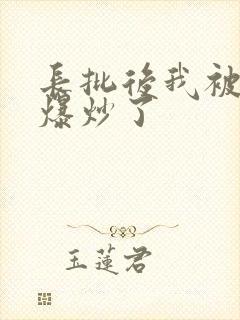 長批後我被
爆炒了
玉蓮君